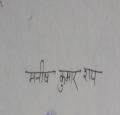 मनीष कुमार राय